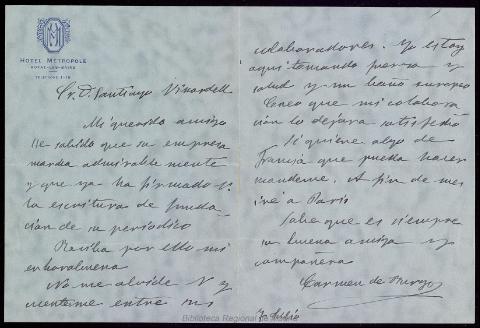 HOTEL METROPOLE
ROYAT-LES-BAINS
TÉLÉPHONE
Sr. D. Santiago Vinardell
Mi querido amigo
He sabido que su empresa
marcha admirablemente
y que ya ha firmado
la escritura de funda-
ción de su periodico
Reciba por ello mi
enhorabuena
No me olvide V y
cuenteme entre sus
colaboradores. Yo estoy
aqui tomando
salud y un baño
Creo que mi colabora
cion lo dejara
Si quiere algo de
Francia que pueda hacer
mandeme. A fin de mes
iré a Paris
Sabe que es siempre
su buena amiga y
compañera
Carmen de Burgos
Julio
Biblioteca Regional de